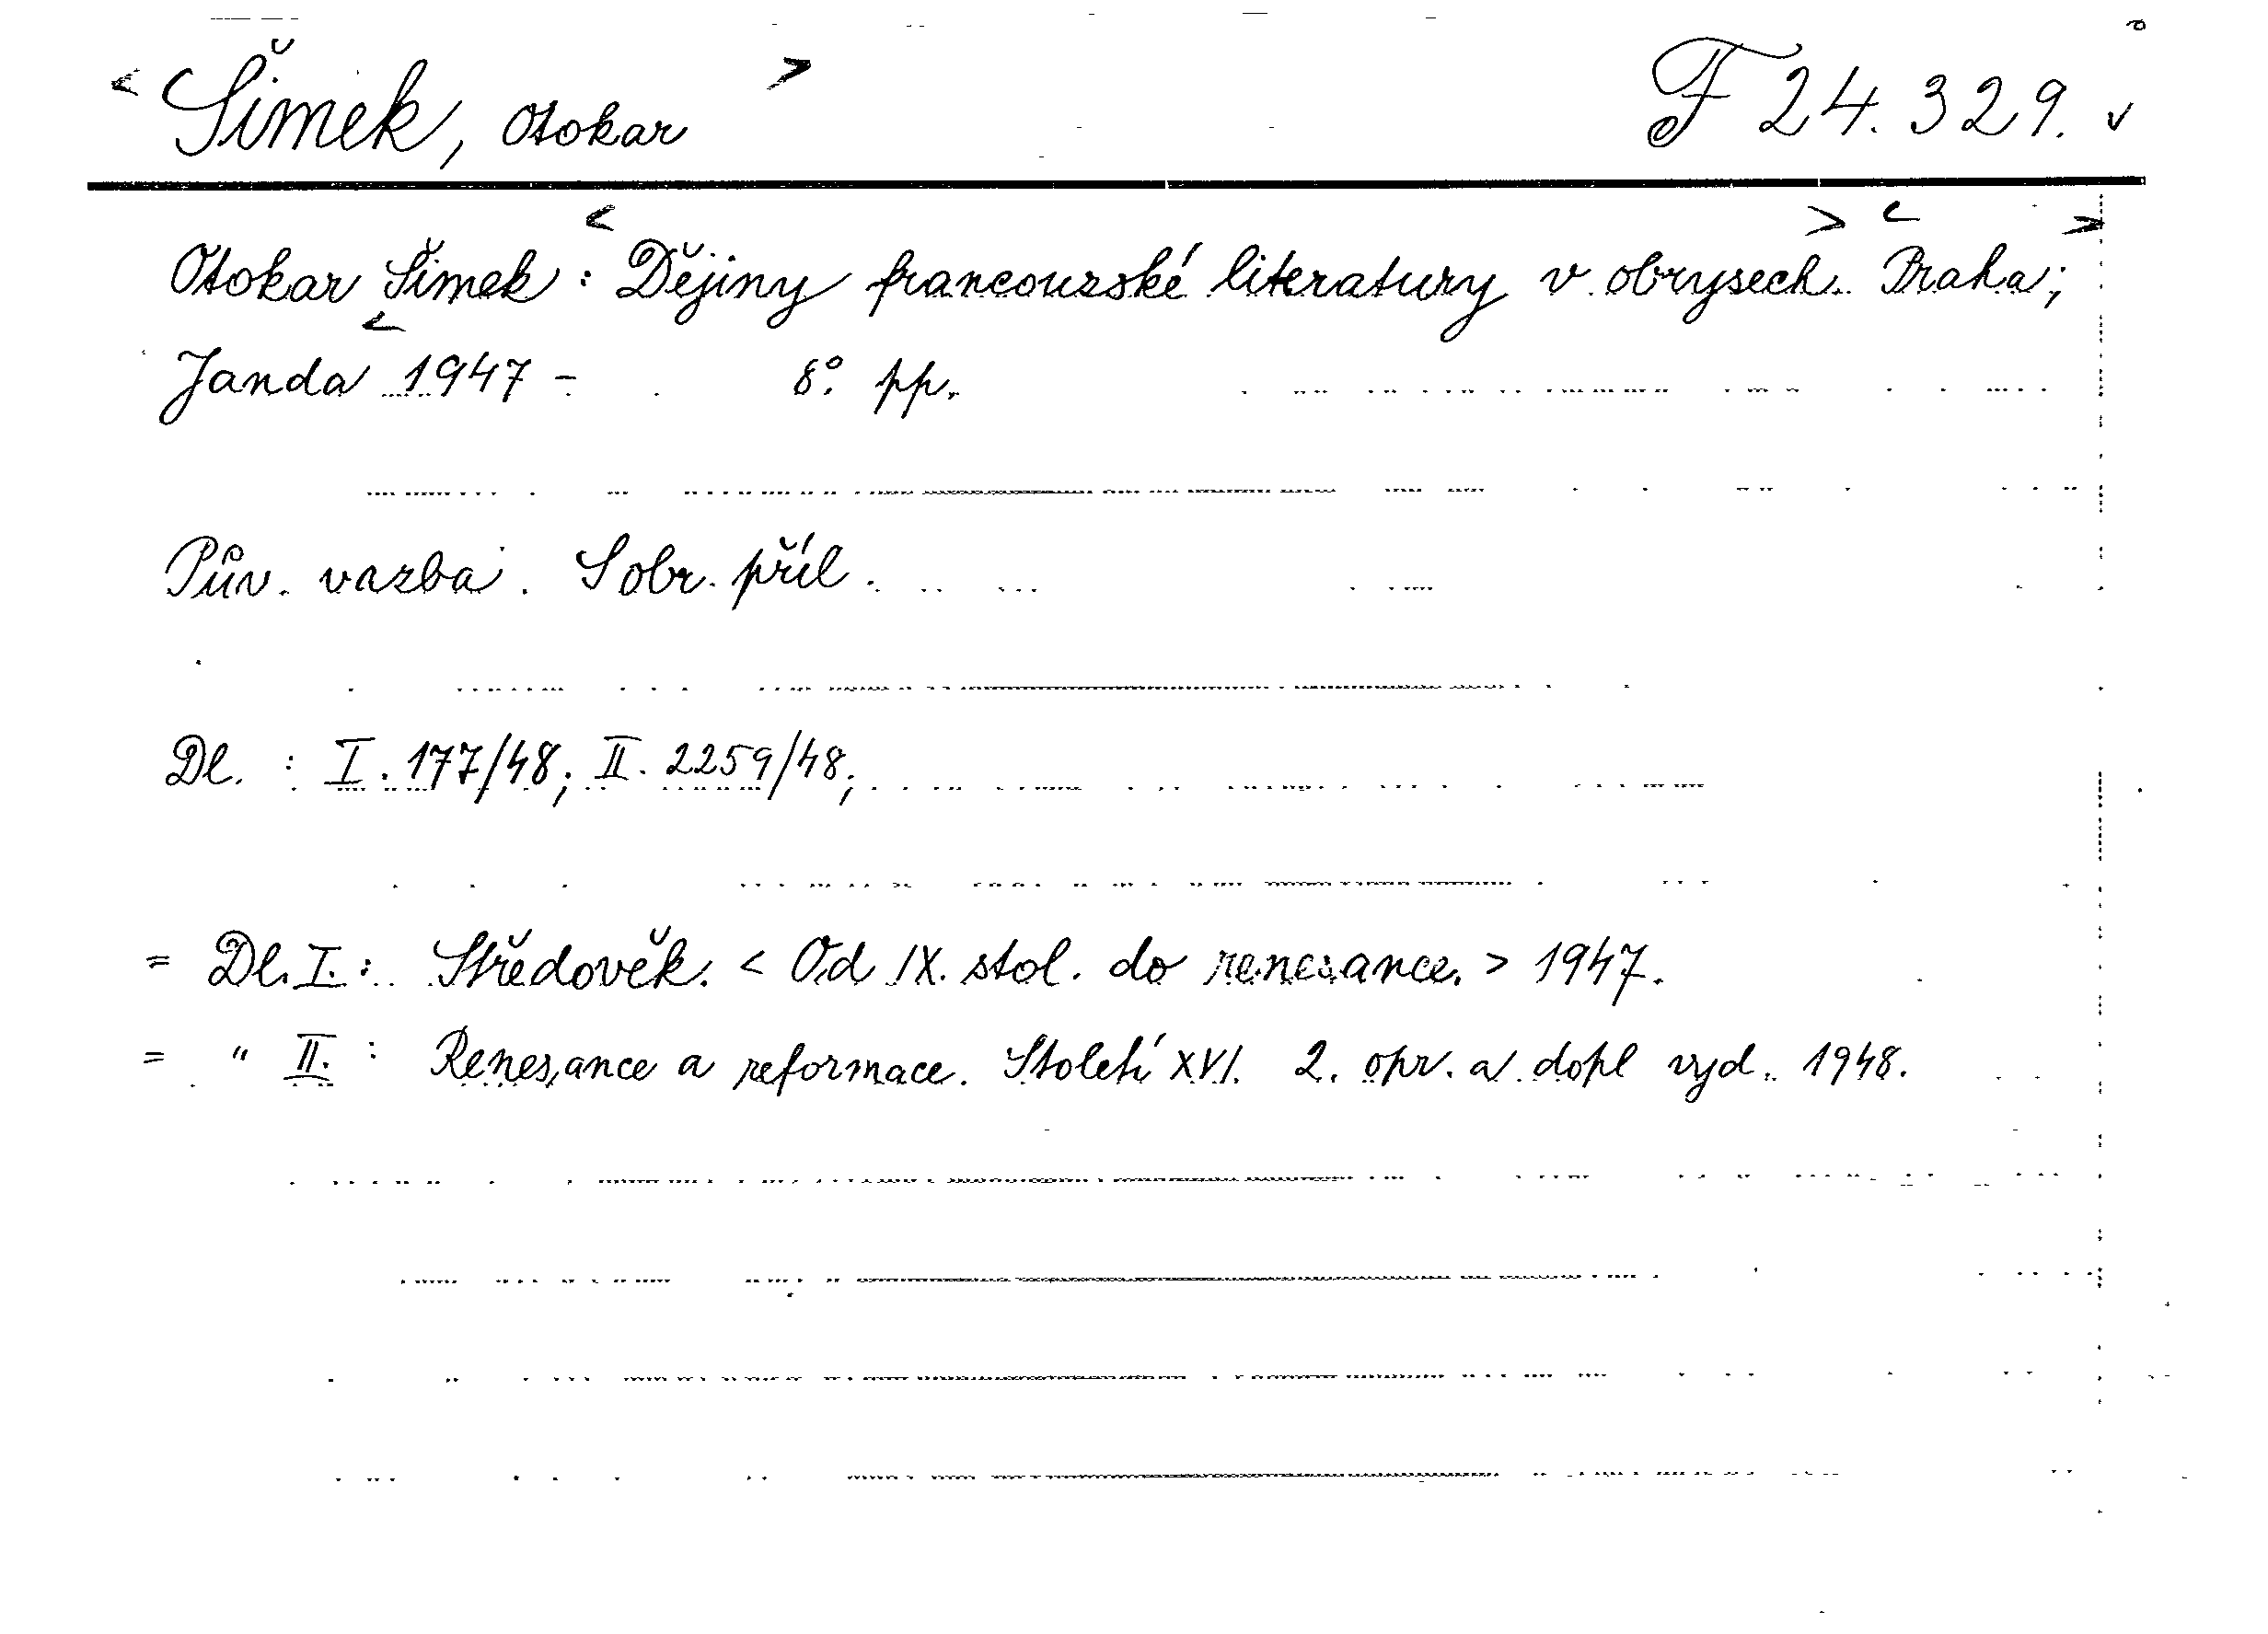 < Šimek, Otokar > F 24.329. v
Otokar Šimek : < Dějiny francouzské literatury v obrysech. > < Praha, >
Janda < 1947 - 8°. pp.
Pův. vazba. S obr. příl.
Dl. : I. 177/48; II. 2259/48;
= Dl. I. : Středověk. < Od IX. stol. do renesance. > 1947.
= " II. : Renesance a reformace. Století XVI. 2. opr. a dopl vyd. 1948.